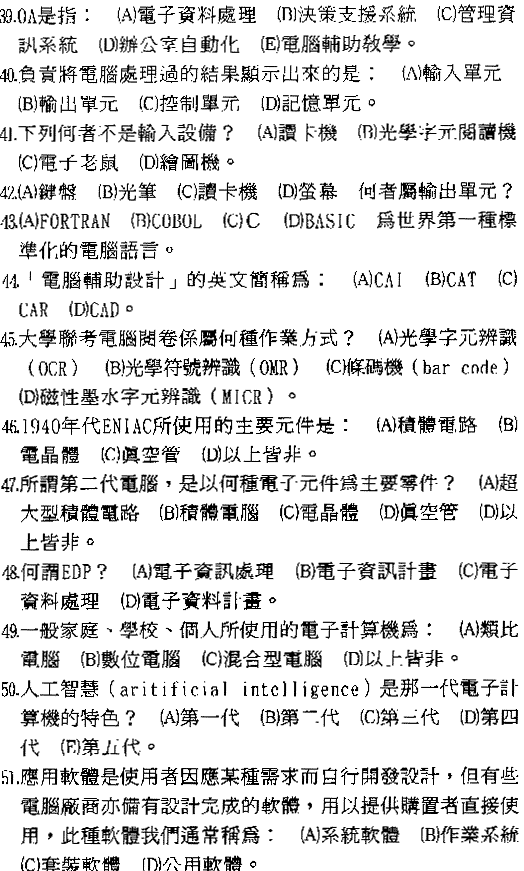 39.OA是指： (A)電子資料處理 (B)決策支援系統 (C)管理資
訊系統 (D)辦公室自動化 (E)電腦輔助教學。
40.負責將電腦處理過的結果顯示出來的是： (A)輸入單元
(B)輸出單元 (C)控制單元 (D)記憶單元。
41.下列何者不是輸入設備？ (A)讀卡機 (B)光學字元閱讀機
(C)電子老鼠 (D)繪圖機。
42.(A)鍵盤 (B)光筆 (C)讀卡機 (D)螢幕 何者屬輸出單元？
43.(A)FORTRAN (B)COBOL (C)C (D)BASIC 爲世界第一種標
準化的電腦語言。
44.「電腦輔助設計」的英文簡稱爲： (A)CAI (B)CAT (C)
CAR (D)CAD。
45.大學聯考電腦閱卷係屬何種作業方式？ (A)光學字元辨識
（OCR） (B)光學符號辨識（OMR） (C)條碼機（bar code）
(D)磁性墨水字元辨識（MICR）。
46.1940年代ENIAC所使用的主要元件是： (A)積體電路 (B)
電晶體 (C)眞空管 (D)以上皆非。
47.所謂第二代電腦，是以何種電子元件爲主要零件？ (A)超
大型積體電路 (B)積體電腦 (C)電晶體 (D)眞空管 (D)以
上皆非。
48.何謂EDP？ (A)電子資訊處理 (B)電子資訊計畫 (C)電子
資料處理 (D)電子資料計畫。
49.一般家庭、學校、個人所使用的電子計算機爲： (A)類比
電腦 (B)數位電腦 (C)混合型電腦 (D)以上皆非。
50.人工智慧（aritificial intelligence）是那一代電子計
算機的特色？ (A)第一代 (B)第二代 (C)第三代 (D)第四
代 (E)第五代。
51.應用軟體是使用者因應某種需求而自行開發設計，但有些
電腦廠商亦備有設計完成的軟體，用以提供購置者直接使
用，此種軟體我們通常稱爲： (A)系統軟體 (B)作業系統
(C)套裝軟體 (D)公用軟體。